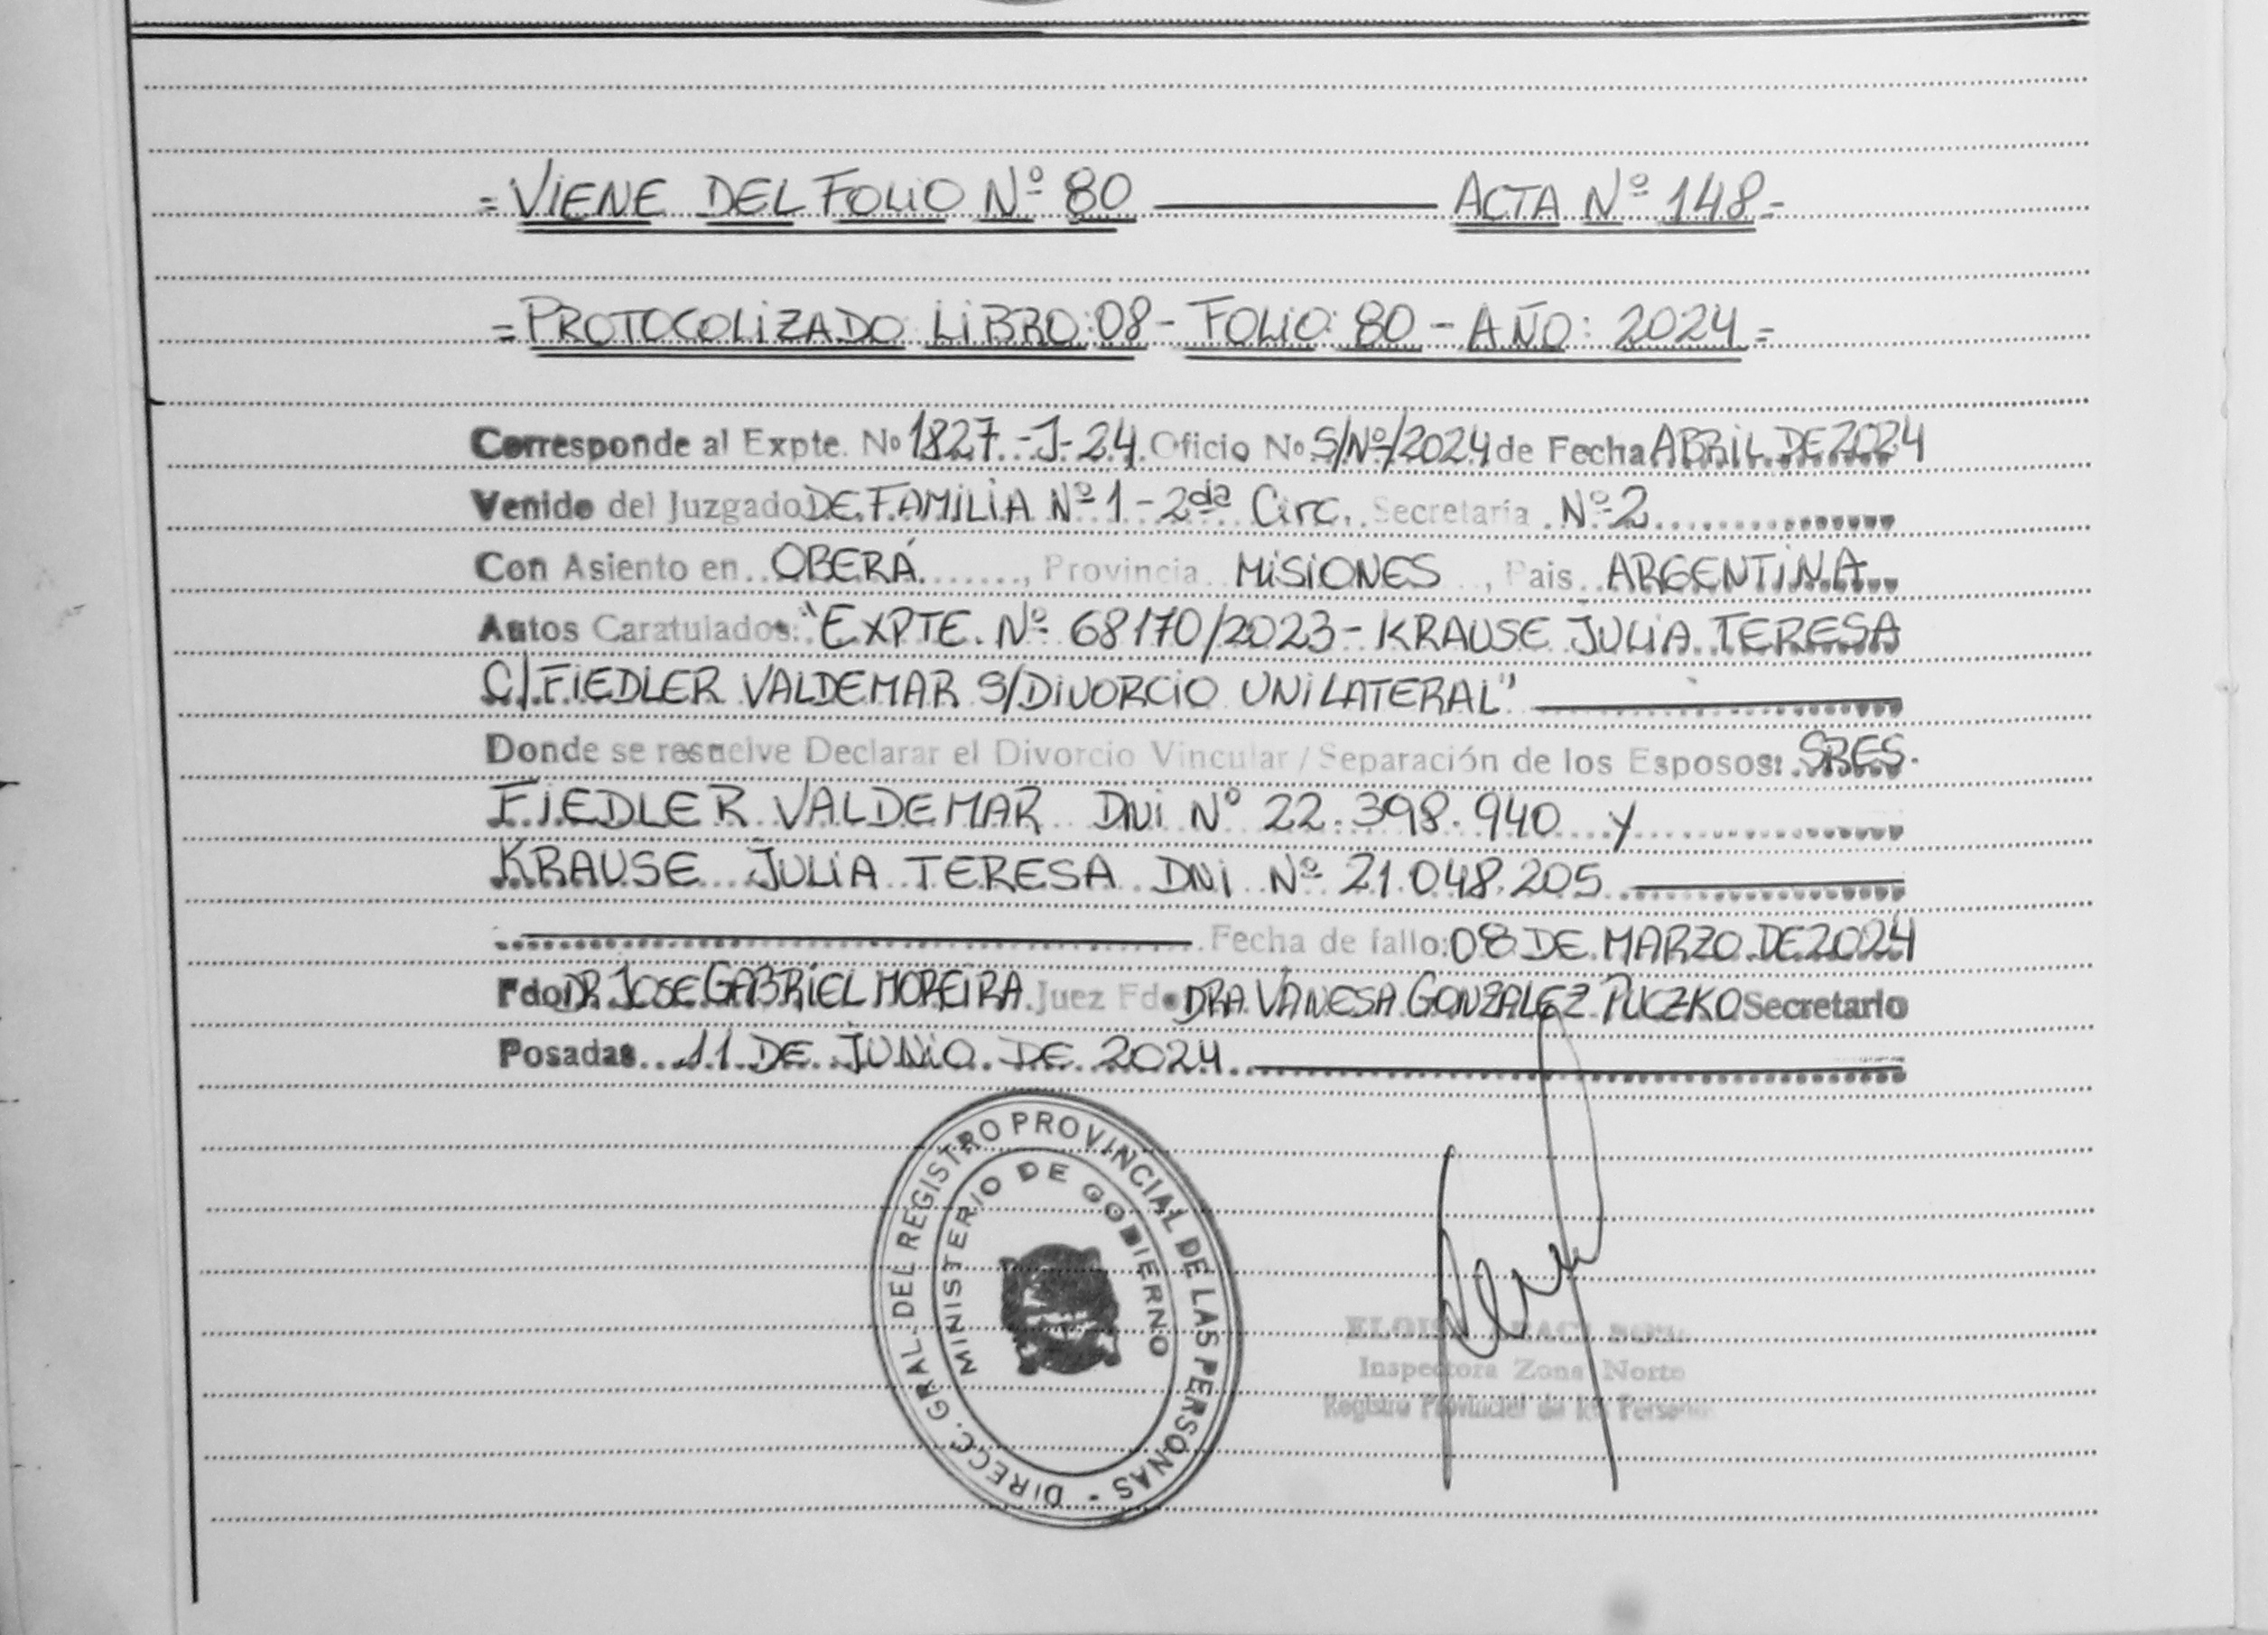 =VIENE DEL FOLIO Nº 80 ACTA Nº 148=
=PROTOCOLIZADO LIBRO: 08 - FOLIO: 80 - AÑO: 2024=
Corresponde al Expte. Nº 1827-J-24 Oficio Nº S/Nº/2024 de Fecha ABRIL DE 2024
Venido del Juzgado DE FAMILIA Nº 1 - 2da Circ. Secretaría Nº 2
Con Asiento en OBERÁ, Provincia MISIONES, Pais ARGENTINA
Autos Caratulados: "EXPTE. Nº 68170/2023 - KRAUSE JULIA TERESA
C/ FIEDLER VALDEMAR S/DIVORCIO UNILATERAL"
Donde se resuelve Declarar el Divorcio Vincular / Separación de los Esposos: SRES.
FIEDLER VALDEMAR DNI Nº 22.398.940 Y
KRAUSE JULIA TERESA DNI Nº 21.048.205
Fecha de fallo: 08 DE MARZO DE 2024
Fdo: DR JOSE GABRIEL MOREIRA Juez Fdo DRA VANESA GONZALEZ PUCZKO Secretario
Posadas 11 DE JUNIO DE 2024
DIRECC. GRAL. DEL REGISTRO PROVINCIAL DE LAS PERSONAS -
MINISTERIO DE GOBIERNO
Inspectora Zona Norte
Registro Provincial de las Personas